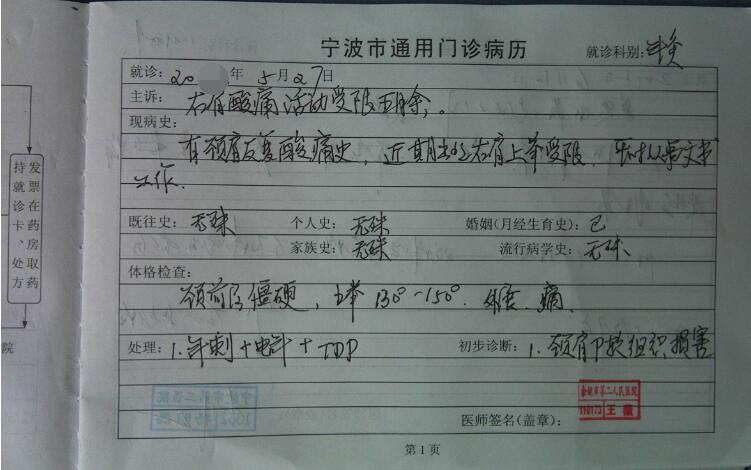 宁波市通用门诊病历
就诊科别:针灸
就诊: 20 年 5月27日
主诉: 右肩酸痛活动受限五月余。
现病史:
有颈肩反复酸痛史, 近期出现右肩上举受限,
工作.
既往史: 无殊 个人史: 无殊 婚姻(月经生育史): 已
家族史: 无殊 流行病学史: 无殊
体格检查:
颈肩部僵硬, 上举 130°~150°. 痛.
处理: 1. 针刺+电针+TDP 初步诊断: 1. 颈肩部软组织损害
余姚市第二人民医院
110173 王
医师签名(盖章):
第1页
发票在药房取药
持就诊卡、处方
院